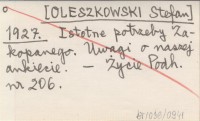 [OLESZKOWSKI Stefan]
1927. Istotne potrzeby Za-
kopanego. Uwagi o naszej
ankiecie. – Życie Podh.
nr 206.